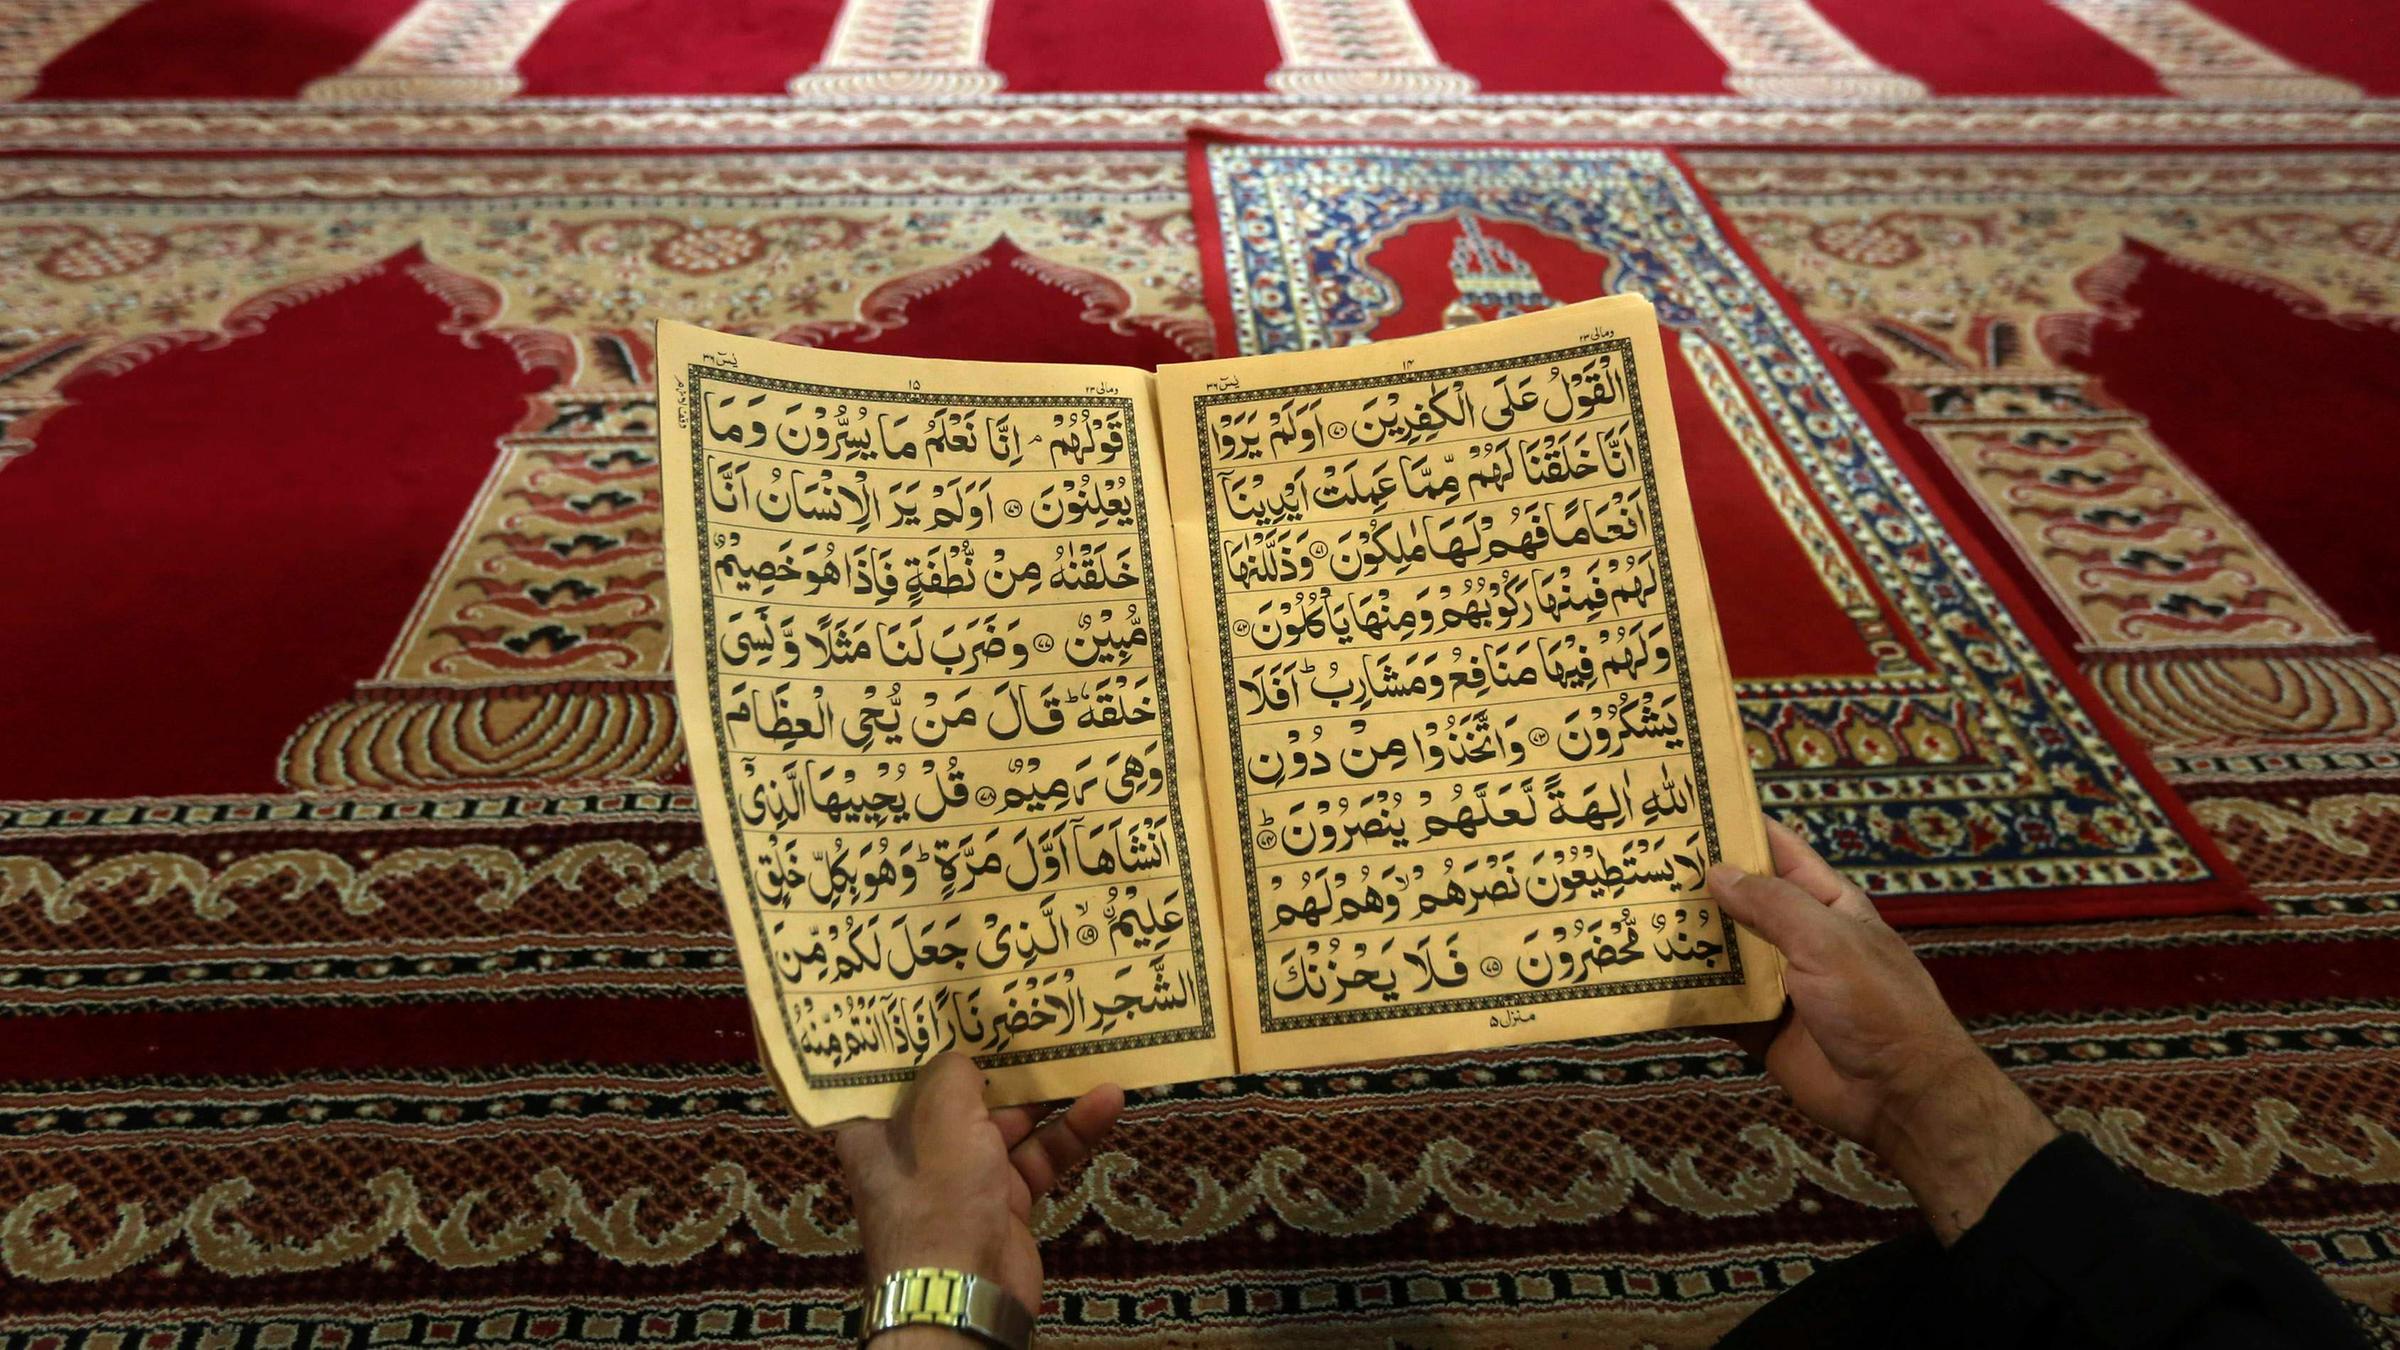 ومالی ۲۳
۱۴
یٰسٓ ۳۶
الْقَوْلُ عَلَى الْكٰفِرِيْنَ ۝۷۰ اَوَلَمْ يَرَوْا
اَنَّا خَلَقْنَا لَهُمْ مِّمَّا عَمِلَتْ اَيْدِيْنَاۤ
اَنْعَامًا فَهُمْ لَهَا مٰلِكُوْنَ ۝۷۱ وَذَلَّلْنٰهَا
لَهُمْ فَمِنْهَا رَكُوْبُهُمْ وَمِنْهَا يَاْكُلُوْنَ ۝۷۲
وَلَهُمْ فِيْهَا مَنَافِعُ وَمَشَارِبُ ؕ اَفَلَا
يَشْكُرُوْنَ ۝۷۳ وَاتَّخَذُوْا مِنْ دُوْنِ
اللّٰهِ اٰلِهَةً لَّعَلَّهُمْ يُنْصَرُوْنَ ؕ۝۷۴
لَا يَسْتَطِيْعُوْنَ نَصْرَهُمْ ۙ وَهُمْ لَهُمْ
جُنْدٌ مُّحْضَرُوْنَ ۝۷۵ فَلَا يَحْزُنْكَ
منزل ۵
ومالی ۲۳
۱۵
یٰسٓ ۳۶
قَوْلُهُمْ ۘ اِنَّا نَعْلَمُ مَا يُسِرُّوْنَ وَمَا
يُعْلِنُوْنَ ۝۷۶ اَوَلَمْ يَرَ الْاِنْسَانُ اَنَّا
خَلَقْنٰهُ مِنْ نُّطْفَةٍ فَاِذَا هُوَ خَصِيْمٌ
مُّبِيْنٌ ۝۷۷ وَضَرَبَ لَنَا مَثَلًا وَّنَسِىَ
خَلْقَهٗ ؕ قَالَ مَنْ يُّحْىِ الْعِظَامَ
وَهِىَ رَمِيْمٌ ۝۷۸ قُلْ يُحْيِيْهَا الَّذِىْۤ
اَنْشَاَهَاۤ اَوَّلَ مَرَّةٍ ؕ وَهُوَ بِكُلِّ خَلْقٍ
عَلِيْمٌ ۙ۝۷۹ الَّذِىْ جَعَلَ لَكُمْ مِّنَ
الشَّجَرِ الْاَخْضَرِ نَارًا فَاِذَاۤ اَنْتُمْ مِّنْهُ